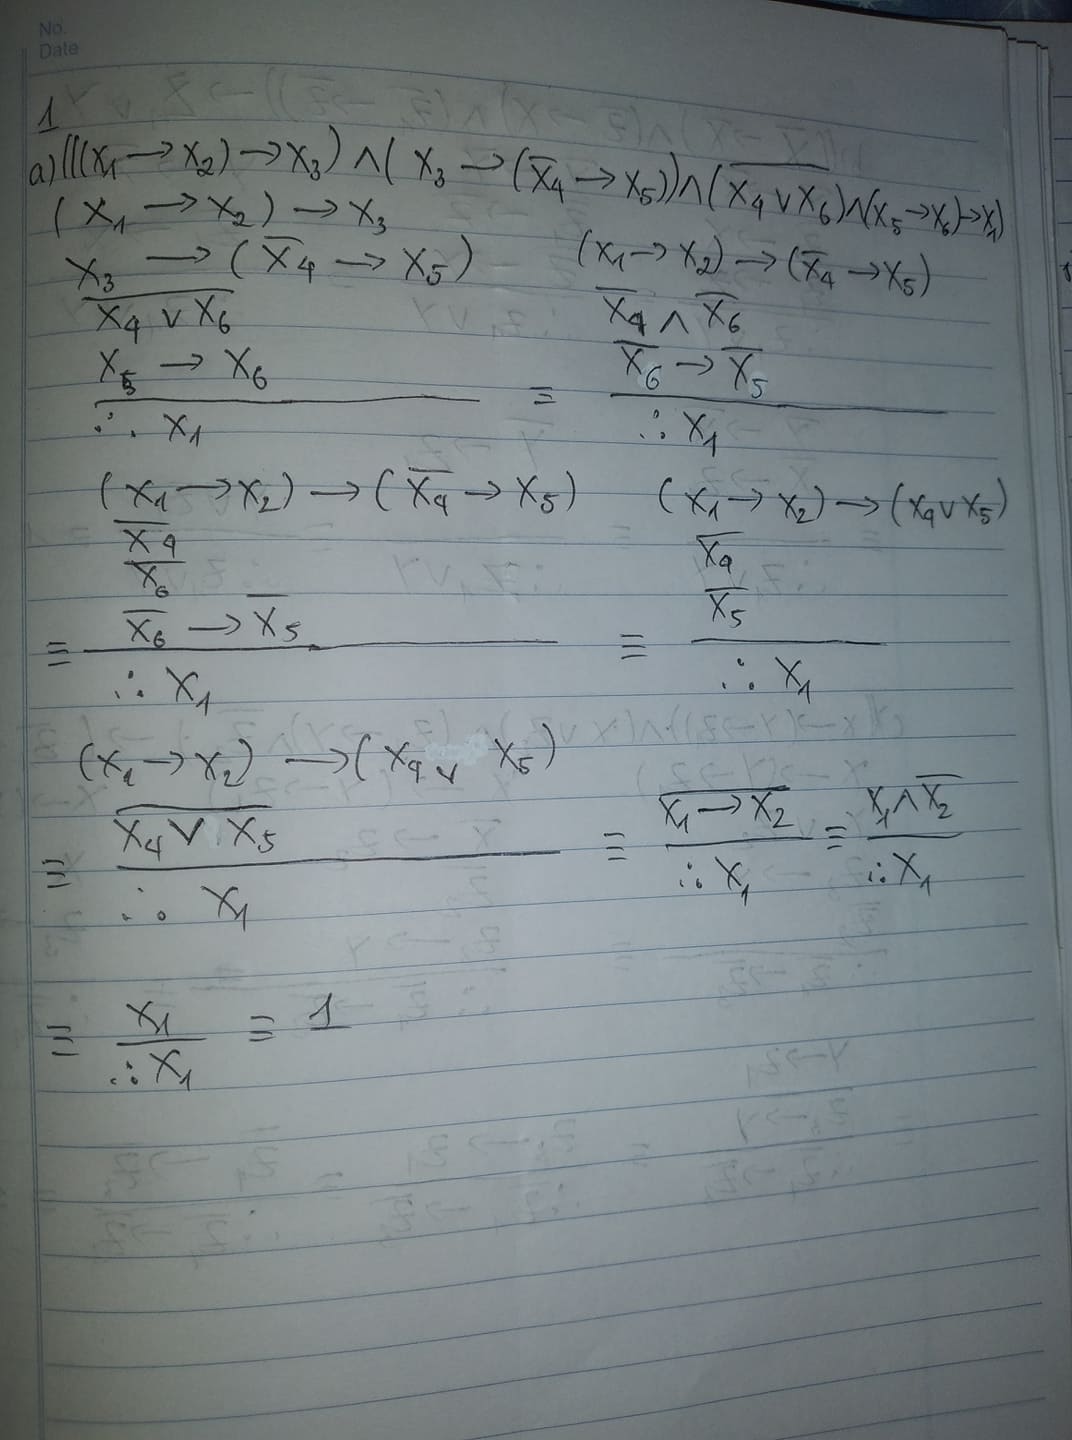 No.
Date
1
a) (((x₁ → x₂) → x₃) ∧ ( x₃ → (x̅₄ → x₅)) ∧ (\overline{x₄ ∨ x₆}) ∧ (x₅ → x₆) → x₁)
(x₁ → x₂) → x₃
x₃ → (x̅₄ → x₅)
\overline{x₄ ∨ x₆}
x₅ → x₆
∴ x₁
≡
(x₁ → x₂) → (x̅₄ → x₅)
x̅₄ ∧ x̅₆
x̅₆ → x̅₅
∴ x₁
≡
(x₁ → x₂) → (x̅₄ → x₅)
x̅₄
x̅₆
x̅₆ → x̅₅
∴ x₁
≡
(x₁ → x₂) → (x₄ ∨ x₅)
x̅₄
x̅₅
∴ x₁
≡
(x₁ → x₂) → (x₄ ∨ x₅)
\overline{x₄ ∨ x₅}
∴ x₁
≡
\overline{x₁ → x₂}
∴ x₁
≡
x₁ ∧ x̅₂
∴ x₁
≡
x₁
∴ x₁
≡ 1